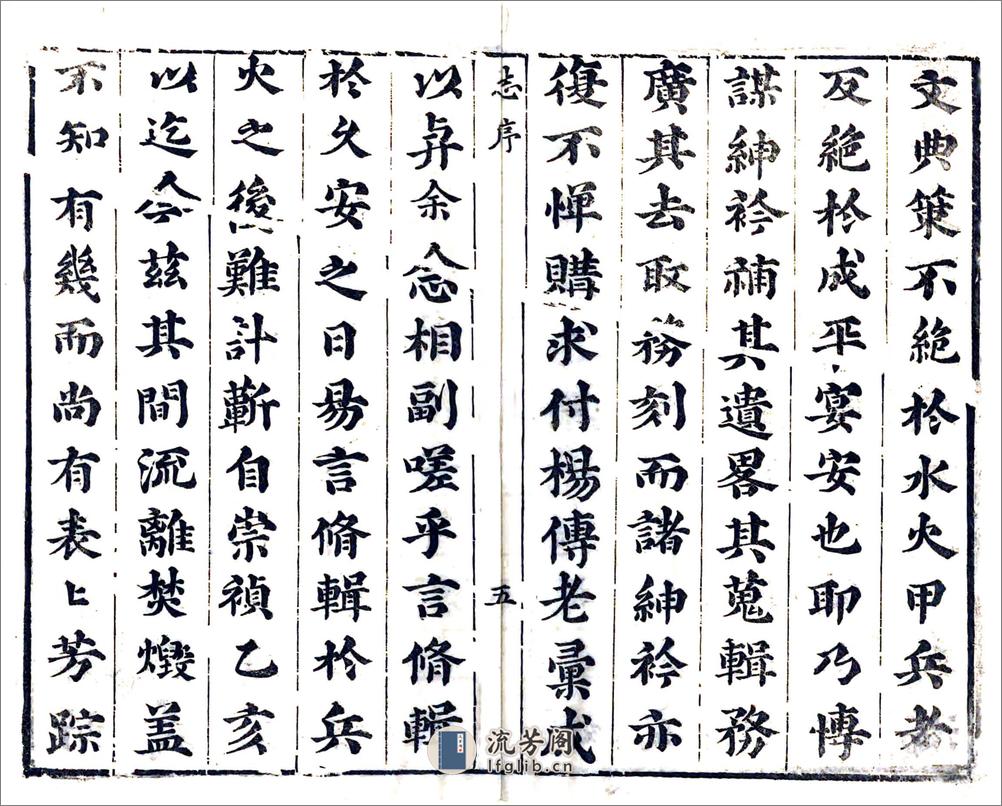 文典策不絶於水火甲兵者
反絶於成平宴安也耶乃博
謀紳衿補其遺畧其蒐輯務
廣其去取務刻而諸紳衿亦
復不憚購求付楊傳老彙成
志序 五
以弁余念相副嗟乎言脩輯
於久安之日易言脩輯於兵
火之後難計蘄自崇禎乙亥
以迄今茲其間流離焚燬盖
不知有幾而尚有表〻芳踪
流芳阁
lfglib.cn